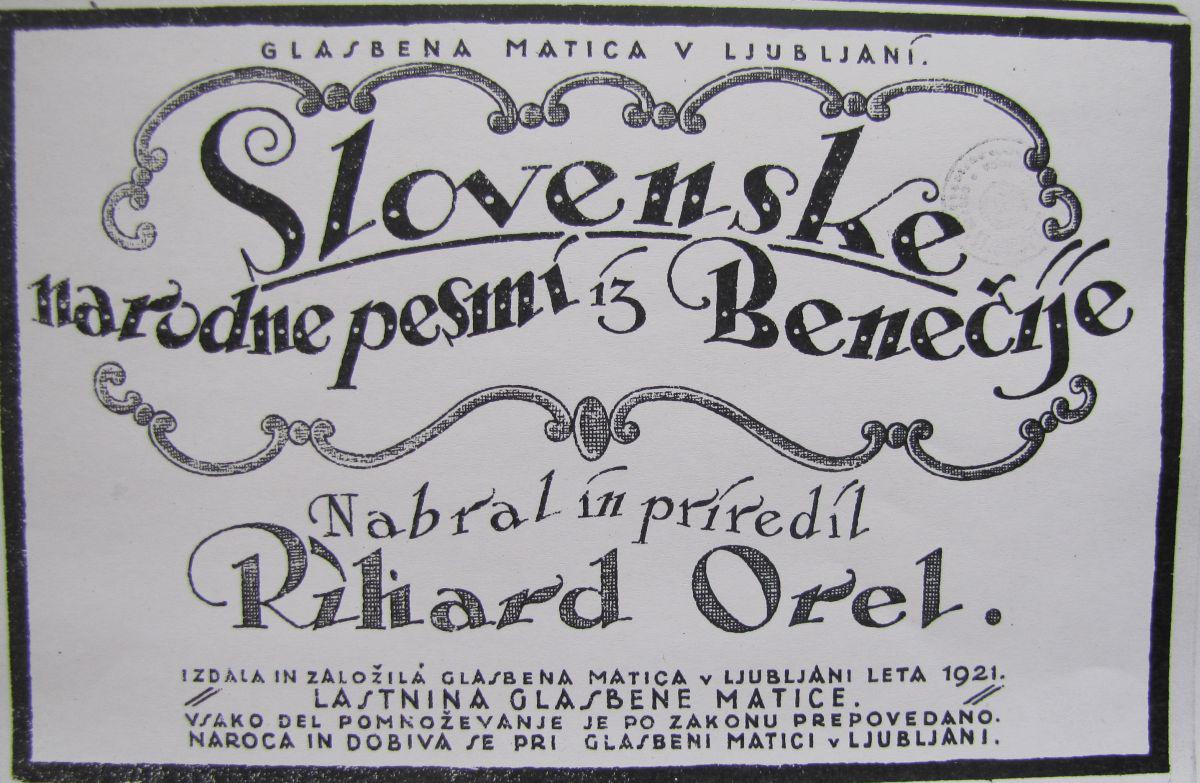 GLASBENA MATICA V LJUBLJANI.
Slovenske
narodne pesmi iz Benečije
Nabral in priredil
Rihard Orel.
IZDALA IN ZALOŽILA GLASBENA MATICA v LJUBLJANI LETA 1921.
LASTNINA GLASBENE MATICE.
VSAKO DEL POMNOŽEVANJE JE PO ZAKONU PREPOVEDANO.
NAROCA IN DOBIVA SE PRI GLASBENI MATICI v LJUBLJANI.